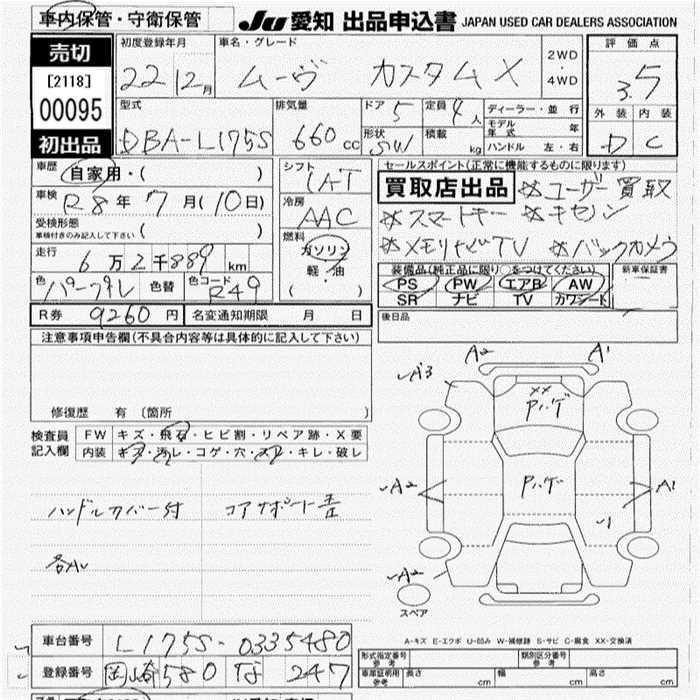 車内保管・守衛保管 JU 愛知 出品申込書 JAPAN USED CAR DEALERS ASSOCIATION
売切 初度登録年月 車名・グレード 2WD 評価点
[2118] 22年12月 ムーヴ カスタムX ・4WD 3.5
00095 型式 排気量 ドア 5 定員 4人 ディーラー・並行 外装 内装
初出品 DBA-L175S 660cc 形状 SW 積載 kg モデル年式 年 D C
ハンドル 左・右
車歴 自家用・( ) シフト IAT セールスポイント(正常に機能するものに限ります)
車検 R8年7月(10日) 冷房 AAC 買取店出品 ※ユーザー買取
受検形態 ( ) ※スマートキー ※キセノン
車検付きのみ記入して下さい
燃料 ガソリン ※メモリナビTV ※バックカメラ
走行 6万2千889km 軽・油 装備品(純正品に限り○をつけてください) 新車保証書
色 パープル 色替 色コード R49 ( ) PS PW エアB AW
SR ナビ TV カワシート
R券 9260円 名変通知期限 月 日 後日品
注意事項申告欄(不具合内容等は具体的に記入して下さい)
A2 A1
A3
XX
Pハゲ
修復歴 有 (箇所 )
検査員記入欄 FW キズ・飛石・ヒビ割・リペア跡・X要
内装 キズ・汚レ・コゲ・穴・スレ・キレ・破レ
A2 Pハゲ A1
ハンドルカバー付 コアサポート歪
各AU
A2
スペア
A-キズ E-エクボ U-凹み W-補修跡 S-サビ C-腐食 XX-交換済
車台番号 L175S-0335480
型式指定番号 参考 類別区分番号 参考
登録番号 岡崎 580 な 247
車庫証明用 参考 長さ cm 幅 cm 高さ cm